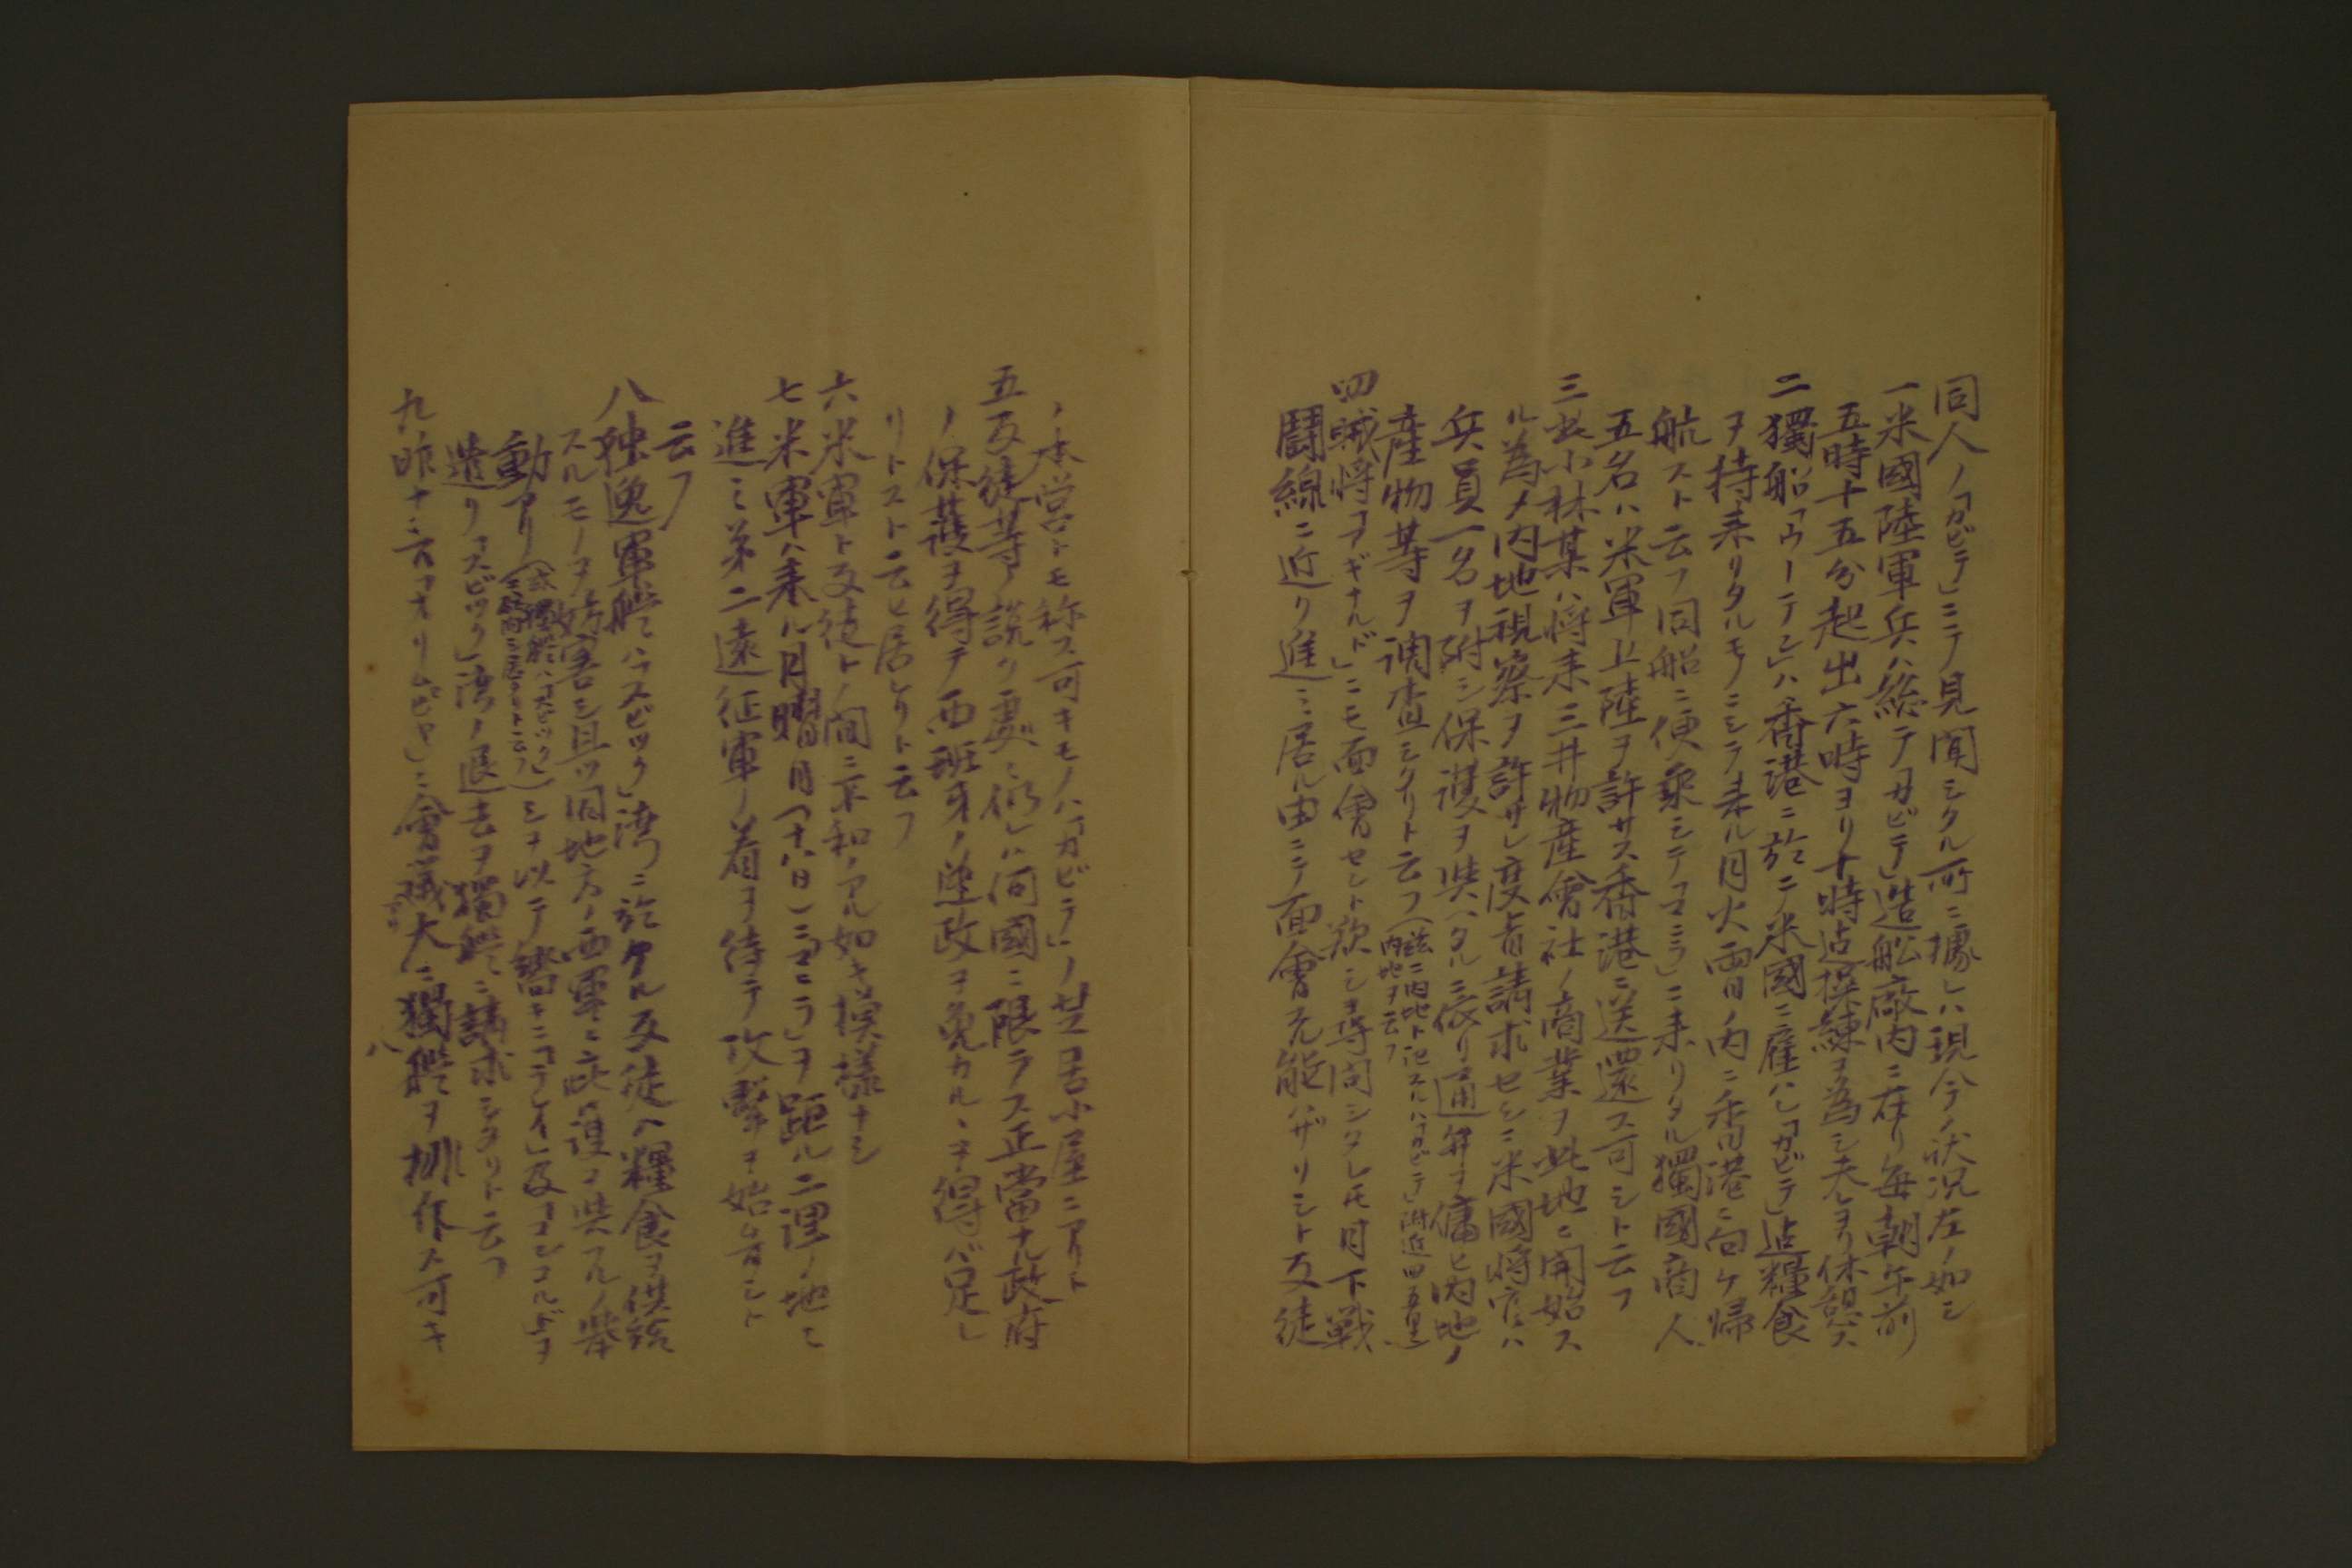 同人ノ「カビテ」ニテ見聞シタル所ニ據レハ現今ノ状況左ノ如シ
一米國陸軍兵ハ総テ「カビテ」造船廠内ニ在リ毎朝午前
五時十五分起出六時ヨリ十時迠操練ヲ為シ夫レヨリ休憩ス
二獨船「ウーテン」ハ香港ニ於テ米國ニ雇ハレ「カビテ」迠糧食
ヲ持来リタルモノニシテ来ル月火両日ノ内ニ香港ニ向ケ帰
航スト云フ同船ニ便乗シテ「マニラ」ニ来リタル獨國商人
五名ハ米軍上陸ヲ許サス香港ニ送還ス可シト云フ
三 小林某ハ将来三井物産會社ノ商業ヲ此地ニ開始ス
ル為メ内地視察ヲ許サレ度旨請求セシニ米國将官ハ
兵員一名ヲ附シ保護ヲ與ヘタルニ依リ通弁ヲ傭ヒ内地ノ
産物等ヲ調査シタリト云フ(茲ニ内地ト記スルハ「カビテ」附近四五里
内地ヲ云フ
四賊将「アギナルド」ニモ面會セント欲シ尋問シタレ圧目下戦
闘線ニ近ク進ミ居ル由ニテ面會元能ハザリシト反徒
ノ本営トモ称ス可キモノハ「カビテ」ノ芝居小屋ニアリト
五反徒等ノ説ク處ニ依レハ何國ニ限ラス正當ナル政府
ノ保護ヲ得テ西班牙ノ虐政ヲ免カルヽヲ得バ足レ
リトスト云ヒ居レリト云フ
六米軍ト反徒トノ間ニ不和ノアル如キ摸様ナシ
七米軍ハ来ル月曜日(十八日)ニ「マニラ」ヲ距ル二浬ノ地ニ
進ミ第二遠征軍ノ着ヲ待テ攻撃ヲ始ム旨ント
云フ
八独逸軍艦ハ「スビック」湾ニ於タル反徒ヘ糧食ヲ供給
スルモノヲ妨害シ且ツ同地方ノ西軍ニ庇護ヲ與フルノ挙
動アリ(獨艦ハ「スビック」
ニ居ラモト云フ)シヲ以テ 「ラレイ」及「コンコルド」ヲ
遣リ「スビック」湾ノ退去ヲ獨艦ニ請求シタリト云フ
九昨十三日「オリムピヤ」ニ會議 大ニ獨艦ヲ排斥ス可キ
八